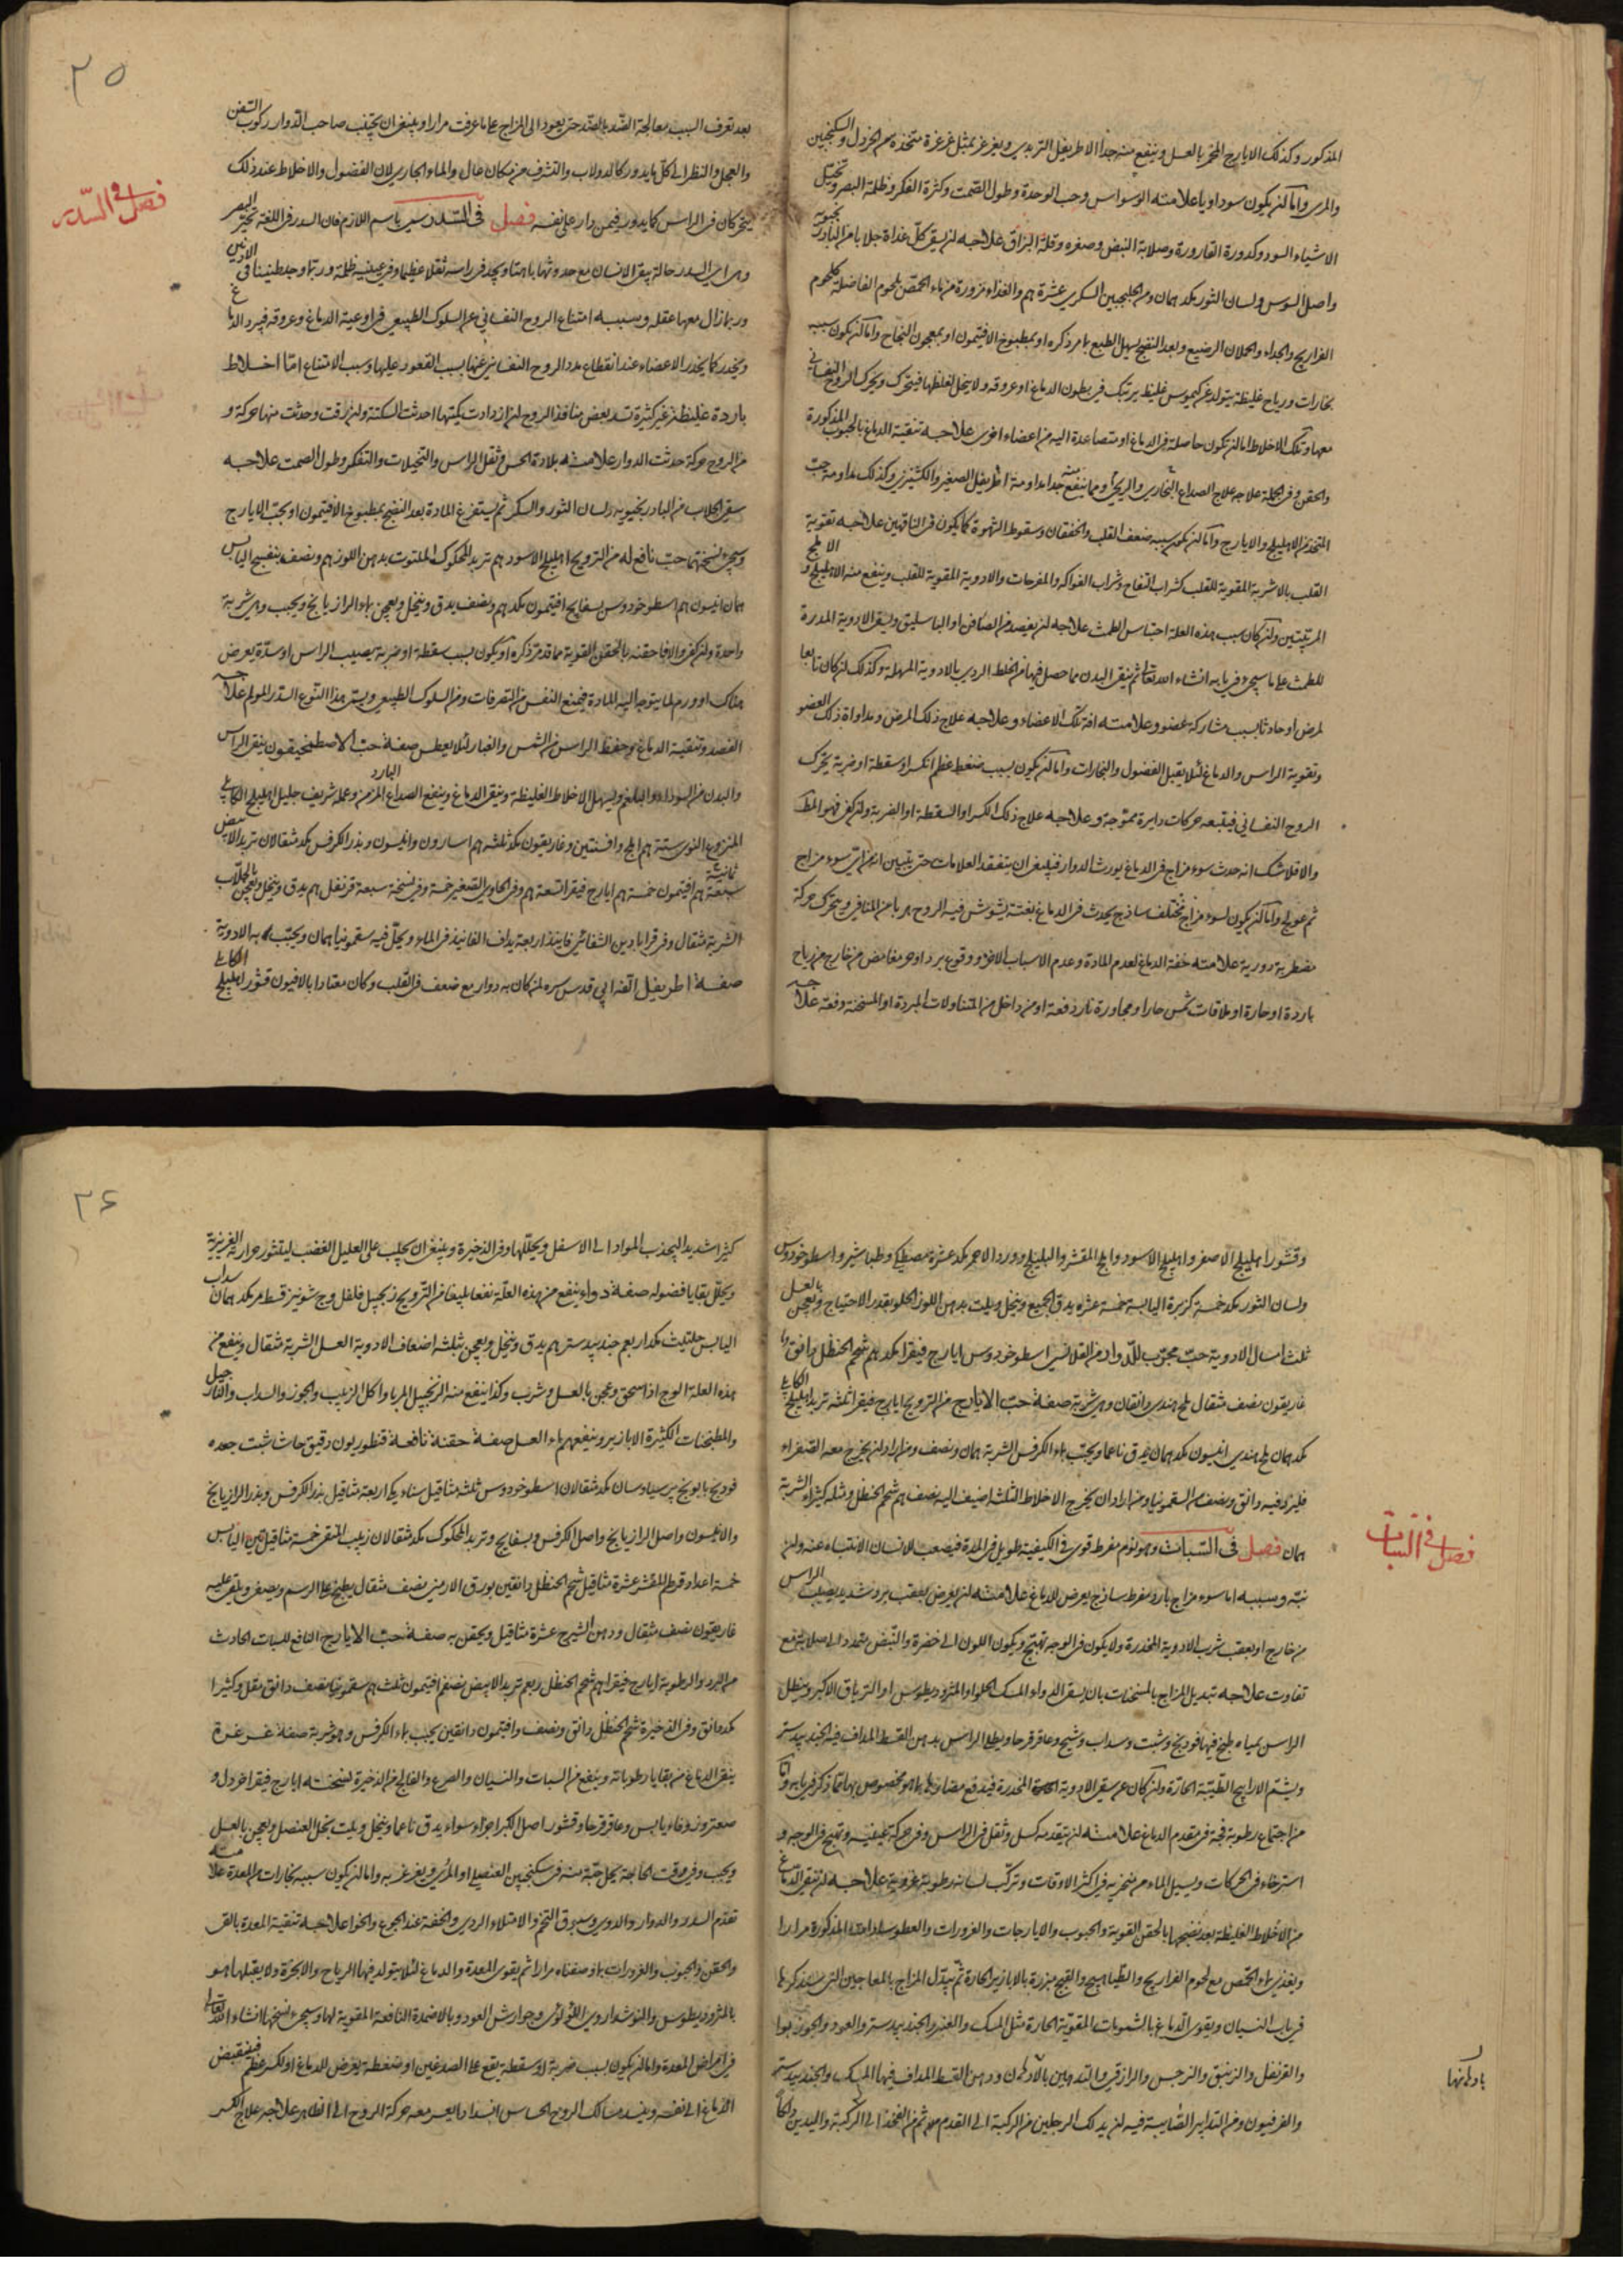 المذكور وكذلك الايارج المخمر بالعسل وينفع منه جدا الاطريفل التربدي ويغرغر بمثل غرغرة متخذة من الخردل والسكنجبين
والمري واما ان يكون سوداويا علامته الوسواس وحب الوحدة وطول الصمت وكثرة الفكر وظلمة البصر وتخيل
الاشياء السود وكدورة القارورة وصلابة النبض وصغره وقلة البزاق علاجه ان يسقى كل غداة جلابا من البادرنجبويه
واصل السوس ولسان الثور مكد همان ومن الجلنجبين السكري عشرة هم والغذاء مزورة من ماء الحمص بلحوم الفاضلة كلحوم
الفراريج والجداء والحملان الرضيع وبعد النضج يسهل الطبع بما مر ذكره او بمطبوخ الافتيمون او بمعجون النجاح واما ان يكون سببه
بخارات ورياح غليظة يتولد عن كيموس غليظ يرتبك في بطون الدماغ او عروقه ولا يتحلل لغلظها فيتحرك ويحرك الروح النفساني
معها وتلك الاخلاط اما ان تكون حاصلة في الدماغ او متصاعدة اليه من اعضاء اخرى علاجه تنقية الدماغ بالحبوب المذكورة
والحقن وفي الجملة علاجه علاج الصداع البخاري والريحي ومما ينفع منه جدا مداومة اطريفل الصغير والكشنيزي وكذلك مداومة حب
المتخذ من الاهليلج والايارج واما ان يكون سببه ضعف القلب والخفقان وسقوط الشهوة كما يكون في الناقهين علاجه تقوية
القلب بالاشربة المقوية للقلب كشراب التفاح وشراب الفواكه والمفرحات والادوية المقوية للقلب وينفع منه الاهليلج والاملج
المربيين وان كان سبب هذه العلة احتباس الطمث علاجه ان يفصد من الصافن او الباسليق ويسقى الادوية المدرة
للطمث على ما سيجيء في بابه انشاء الله تعالى ثم ينقى البدن مما حصل فيها من الخلط الردي بالادوية المسهلة وكذلك ان كان تابعا
لمرض او حادثا بسبب مشاركة عضو وعلامته افة تلك الاعضاء وعلاجه علاج ذلك المرض ومداواة ذلك العضو
وتقوية الراس والدماغ لئلا يقبل الفضول والبخارات واما ان يكون بسبب ضغط عظم انكسر او سقطة او ضربة يحرك
الروح النفساني فيتبعه حركات دايرة مموجة وعلاجه علاج ذلك الكسر او السقطة او الضربة وان كفى فهو المط
والا فلا شك انه حدث سوء مزاج في الدماغ يورث الدوار فينبغي ان يتفقد العلامات حتى يتبين انه من اي سوء مزاج
ثم عولج واما ان يكون لسوء مزاج مختلف ساذج يحدث في الدماغ بغتة يشوش فيه الروح هربا من المنافي ويتحرك حركة
مضطربة دورية علامته خفة الدماغ لعدم المادة وعدم الاسباب الاخر ووقوع برد او حر مغافص من خارج من رياح
باردة او حارة او ملاقات شمس حار او مجاورة نار دفعة او من داخل من المتناولات المبردة او المسخنة دفعة علاجه
٢٥
بعد تعرف السبب معالجة الضد بالضد حتى يعود الى المزاج على ما عرفت مرارا وينبغي ان يجتنب صاحب الدوار ركوب السفن
والعجل والنظر الى كل ما يدور كالدولاب والتشرف من مكان عال والماء الجاري لان الفضول والاخلاط عند ذلك
يتحركان في الراس كما يدور فيمن دار على نفسه فصل في السدر سمي باسم اللازم فان السدر في اللغة تحير البصر
فصل في السدر
وهي اعني السدر حالة يبقى الانسان مع حدوثها باهتا ويجد في راسه ثقلا عظيما وفي عينيه ظلمة وربما وجد طنينا في الاذنين
وربما زال معها عقله وسببه امتناع الروح النفساني عن السلوك الطبيعي في اوعية الدماغ وعروقه فيبرد الدماغ
ويخدر كما يخدر الاعضاء عند انقطاع مدد الروح النفساني عنها بسبب القعود عليها وسبب الامتناع اما اخلاط
باردة غليظة غير كثيرة تسد بعض منافذ الروح ان ازدادت كميتها احدثت السكتة وان رقت وحدثت منها حركة و
من الروح حركة حدثت الدوار علامته بلادة الحس وثقل الراس والتخيلات والتفكر وطول الصمت علاجه
سقي الجلاب من البادرنجبويه ولسان الثور والسكر ثم يستفرغ المادة بعد النضج بمطبوخ الافتيمون او بحب الايارج
وسيجيء نسختهما حب نافع له من الترويح اهليلج الاسود هم تربد المحكوك الملتوت بدهن اللوز هم ونصف بنفسج اليابس
همان انيسون هم اسطوخودوس بسفايج افتيمون مكد هم ونصف يدق وينخل ويعجن بماء الرازيانج ويحبب وهي شربة
واحدة وان كفى والا فاحقنه بالحقن القوية مما قد مر ذكره او يكون بسبب سقطة او ضربة يصيب الراس او سدة يعرض
هناك او ورم لما يتوجه اليه المادة فيمنع النفس من التصرفات ومن السلوك الطبيعي ويسمى هذا النوع السدر المولم علاجه
الفصد وتنقية الدماغ وحفظ الراس من الشمس والغبار لئلا يعطس صفة حب الاصطمخيقون ينقي الراس
والبدن من السوداء والبلغم ويسهل الاخلاط الغليظة وينقي الدماغ وينفع الصداع البارد المزمن وعمله شريف جليل اهليلج الكابلي
المنزوع النوى ستة هم املج وافسنتين وغاريقون مكد ثلثة هم اسارون وانيسون وبذر الكرفس مكد مثقالان تربد الابيض
سبعة هم افتيمون خمسة هم ايارج فيقرا تسعة هم وفي الحاوي الصغير خمسة وفي نسخة سبعة قرنفل هم يدق وينخل ويعجن بالجلاب
ثمانية
الشربة مثقال وفي قرابادين الشفائي فانيذ اربعة يداف الفانيذ في الماء ويحل فيه سقمونيا همان ويحبب به الادوية
صفة اطريفل الفه ابي قدس سره لمن كان به دوار مع ضعف في القلب وكان معتادا بالافيون قشور اهليلج الكابلي
وقشور اهليلج الاصفر واهليلج الاسود واملج المقشر والبليلج وورد الاحمر مكد عشرة مصطكي وطباشير واسطوخودوس
ولسان الثور مكد خمسة كزبرة اليابسة خمسة عشره يدق الجميع وينخل ويلت بدهن اللوز الحلو بقدر الاحتياج ويعجن بالعسل
ثلث امثال الادوية حب مجرب للدوار من القلانسي اسطوخودوس ايارج فيقرا مكد هم شحم الحنظل دانق
غاريقون نصف مثقال ملح هندي دانقان وهي شربة صفة حب الايارج من الترويح ايارج فيقرا ثلثه تربد اهليلج الكابلي
مكد همان ملح هندي انيسون مكد همان يدق ناعما ويحبب بماء الكرفس الشربة همان ونصف ومن اراد ان يخرج معه الصفراء
فليزد فيه دانق ونصف من السقمونيا ومن اراد ان يخرج الاخلاط الثلثة اضيف اليه نصف هم شحم الحنظل ومثله كثيراء الشربة
همان فصل في السبات وهو نوم مفرط قوي في الكيفية طويل في المدة فيصعب للانسان الانتباه عنه وان
فصل في السبات
نبه وسببه اما سوء مزاج بارد مفرط ساذج يعرض للدماغ علامته ان يعرض بعقب برد شديد يصيب الراس
من خارج او بعقب شرب الادوية المخدرة ولا يكون في الوجه تهيج ويكون اللون الى خضرة والنبض متمدد الى صلابة مع
تفاوت علاجه تبديل المزاج بالمسخنات بان يسقى الدواء المسك الحلو او المثروديطوس او الترياق الاكبر وينطل
الراس بمياه طبخ فيها فودنج وشبت وسداب وشيح وعاقرقرحا ويطلى الراس بدهن القسط المداف فيه الجندبيدستر
ويشم الارايح الطيبة الحارة وان كان عن سقي الادوية المخدرة فيدفع مضارها بما هو مخصوص بها مما ذكر في بابه واما
من اجتماع رطوبة فجة في مقدم الدماغ علامته ان يتقدمه كسل وثقل في الراس وفي حركة عينيه وتهيج في الوجه و
استرخاء في الحركات ويسيل الماء من منخريه في اكثر الاوقات وتركب لسانه رطوبة غروية علاجه ان ينقى الدماغ
من الاخلاط الغليظة بعد نضجها بالحقن القوية والحبوب والايارجات والغرورات والعطوسات المذكورة مرارا
ويغذى بماء الحمص مع لحوم الفراريج والطياهيج والقبج مبزرة بالابازير الحارة ثم يبدل المزاج بالمعاجين التي سنذكرها
في باب النسيان ويقوى الدماغ بالشمومات المقوية الحارة مثل المسك والعنبر والجندبيدستر والعود والجوزبوا
والقرنفل والزنبق والنرجس والرازقي والتدهين بالادهان ودهن القسط المداف فيها المسك والجندبيدستر
بادهانها
والفرفيون ومن التدابير الصايبة فيه ان يدلك الرجلين من الركبة الى القدم ثم من الفخذ الى الركبة واليدين دلكا
٢٦
كثيرا شديدا ليجذب المواد الى الاسفل ويحللها وفي الذخيرة وينبغي ان يجلب على العليل الغضب ليثور حرارته الغريزية
ويحلل بقايا فضوله صفة دواء ينفع من هذه العلة نفعا بليغا من الترويح زنجبيل فلفل وج شونيز قسط مر مكد همان سداب
اليابس حلتيث مكد اربعه جندبيدستر هم يدق وينخل ويعجن بثلثة اضعاف الادوية العسل الشربة مثقال وينفع من
هذه العلة الوج اذا سحق وعجن بالعسل وشرب وكذا ينفع منه الزنجبيل المربا واكل الزبيب والجوز والسداب والنارجيل
والمطبخات الكثيرة الابازير وينفعهم ماء العسل صفة حقنة نافعة قنطوريون دقيق حاشا شبت جعده
فودنج بابونج پرسياوسان مكد مثقالان اسطوخودوس ثلثة مثاقيل سناء مكي اربعة مثاقيل بذر الكرفس وبذر الرازيانج
والانيسون واصل الرازيانج واصل الكرفس وبسفايج وتربد المحكوك مكد مثقالان زبيب المنقى خمسة مثاقيل تين اليابس
خمسة اعداد قرطم المقشر عشرة مثاقيل شحم الحنظل دانقين بورق الارمني نصف مثقال يطبخ على الرسم ويصفى ويلقى عليه
غاريقون نصف مثقال ودهن الشيرج عشرة مثاقيل ويحقن به صفة حب الايارج النافع للسبات الحادث
من البرد والرطوبة ايارج فيقرا هم شحم الحنظل ربعم تربد الابيض نصفم افتيمون ثلث هم سقمونيا نصف دانق مقل وكثيرا
مكد دانق وفي الذخيرة شحم الحنظل دانق ونصف وافتيمون دانقين يحبب بماء الكرفس وهو شربة صفة غرغرة
ينقي الدماغ من بقايا رطوباته وينفع من السبات والنسيان والصرع والفالج من الذخيرة نسخته ايارج فيقرا خردل و
صعتر وزوفاء يابس وعاقرقرحا وقشور اصل الكبر اجزاء سواء يدق ناعما وينخل ويلت بخل العنصل ويعجن بالعسل
ويحبب وفي وقت الحاجة يحل حبة منه في سكنجبين العنصلي او المري ويغرغر به واما ان يكون سببه بخارات من المعدة علامته
تقدم السدر والدوار والدوي وسبوق التخم والامتلاء الردي والخفة عند الجوع والخوا علاجه تنقية المعدة بالقي
والحقن والحبوب والغرورات بما وصفناه مرارا ثم يقوى المعدة والدماغ لئلا يتولد فيها الرياح والابخرة ولا يقبلها هو
بالمثروديطوس والنوشداروي اللؤلؤي وجوارش العود وبالاضمدة النافعة المقوية لها وسيجيء نسخها انشاء الله تعالى
في امراض المعدة واما ان يكون بسبب ضربة او سقطة يقع على الصدغين او ضغطة يعرض للدماغ او لكسر عظم فينقبض
الدماغ الى نفسه وينسد مسالك الروح الحساس انسدادا يعسر معه حركة الروح الى الظاهر علاجه علاج الكسر